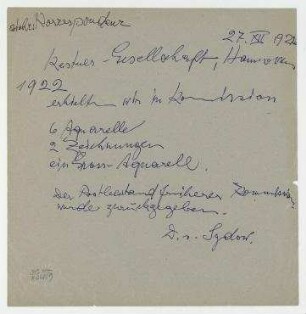 Korrespondenz
27. XII 1922
Kestner-Gesellschaft, Hannover
1922
erhielten wir in Kommission
6 Aquarelle
2 Zeichnungen
ein Gross-Aquarell.
Der Restbestand früherer
wurde zurückgegeben.
D. v. Sydow.